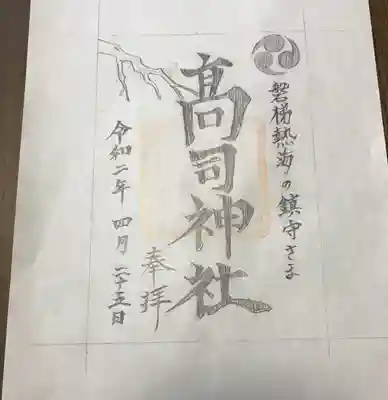 磐梯熱海の鎮守さま
髙司神社
奉拝
令和二年四月二十五日